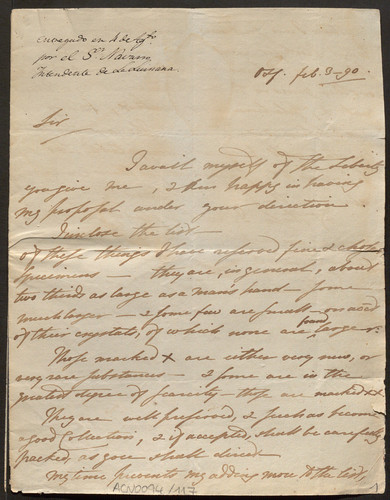 Entregado en 4 de Ag.to
por el S.or Navarro
Intendente de la Luisiana.
Feb. 3-90.
Sir
I avail myself of the liberty
you give me, & thus happy in having
my proposal under your direction
I inclose the list
of these things I have referred fine & choice
specimens — they are, in general, about
two thirds as large as a man's hand — some
much larger — & some few are small on acc.t
of their crystals, of which none are found large.
Those marked × are either very new, or
very rare substances — & some are in the
greatest degree of scarcity — those are marked ××
They are well preserved, & such as become
a good Collection, & if accepted, shall be carefully
packed, as you shall direct.
My time prevents my adding more to the list,
ACN0094/117
1